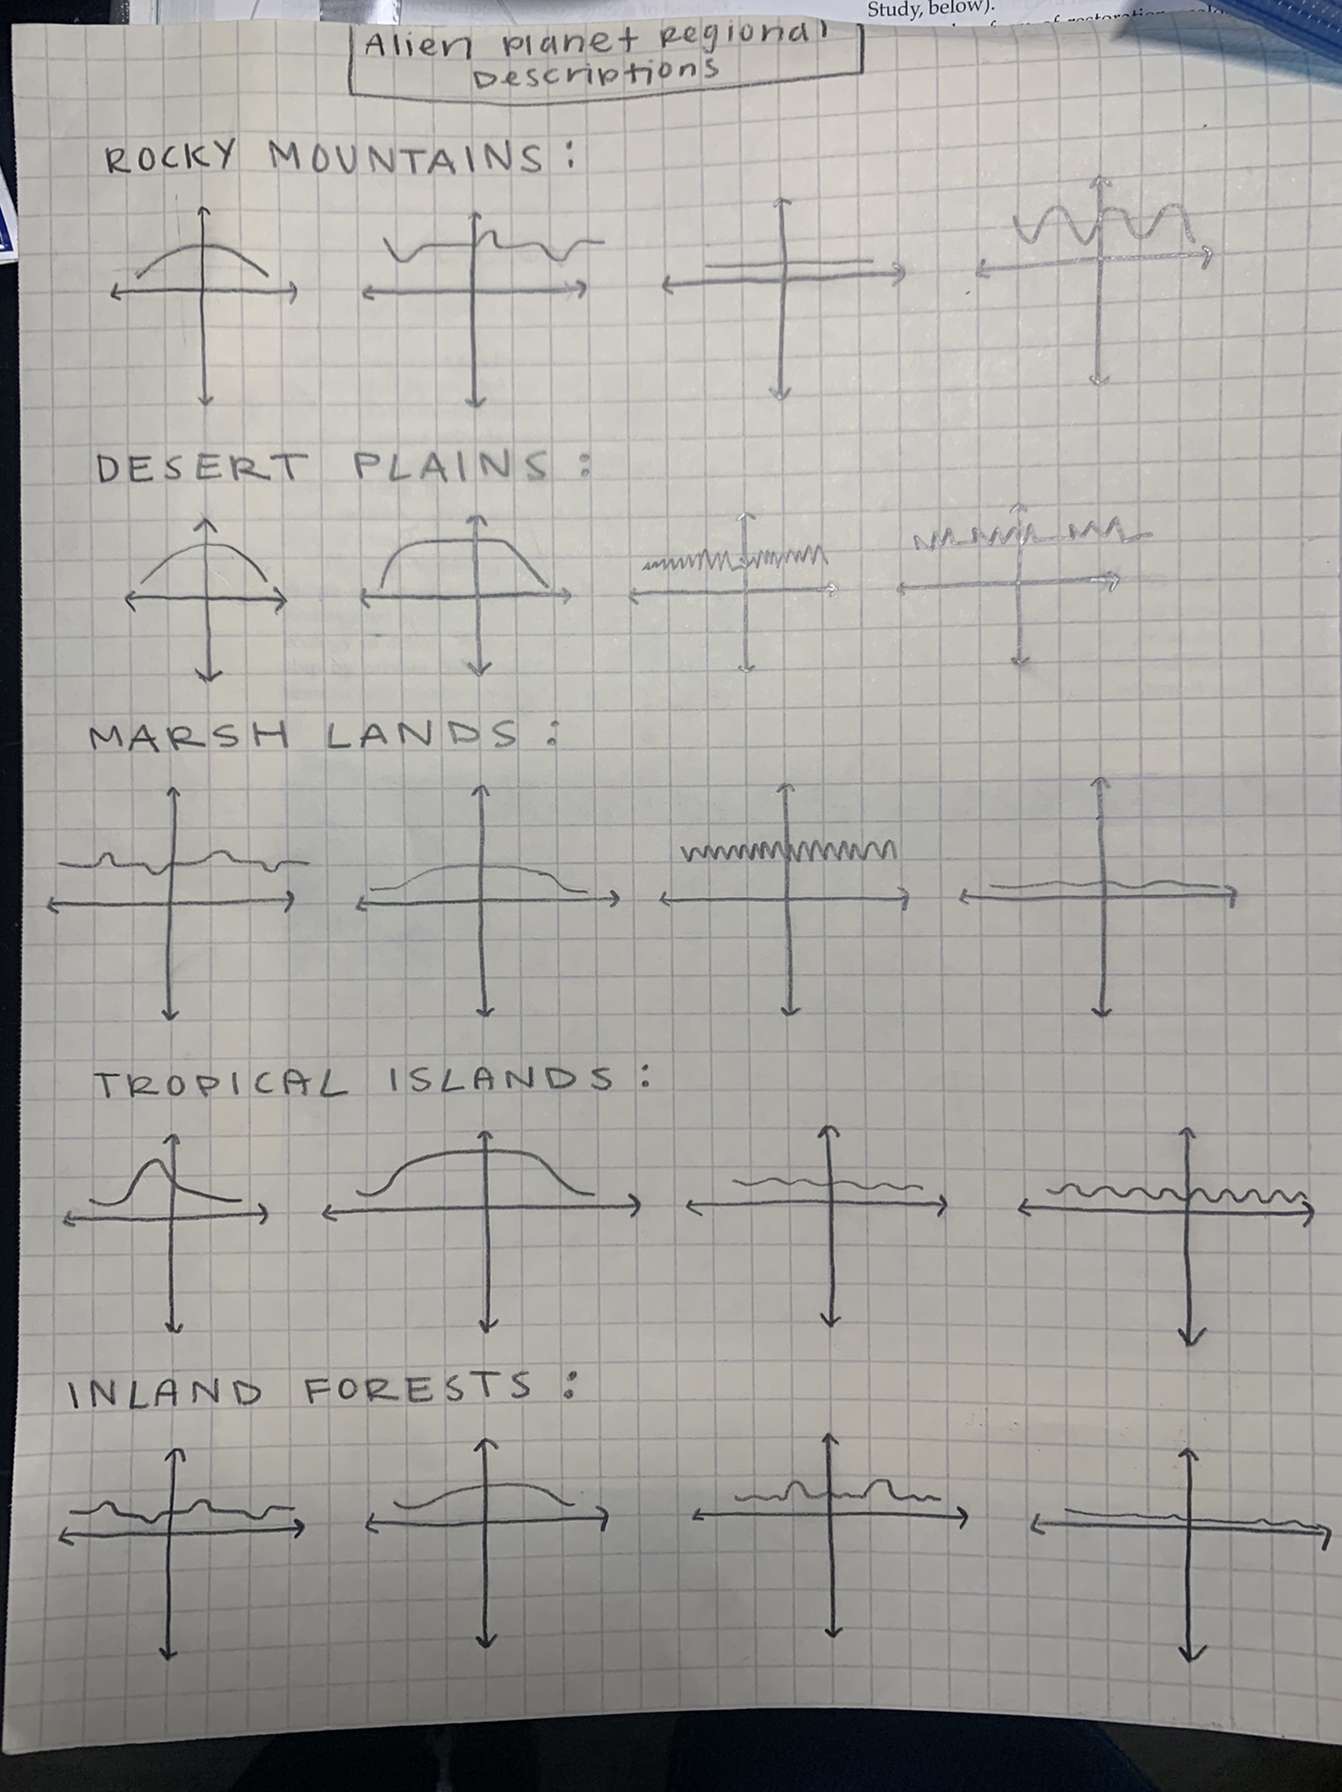 Study, below).
Alien planet Regional
Descriptions
ROCKY MOUNTAINS:
DESERT PLAINS:
MARSH LANDS:
TROPICAL ISLANDS:
INLAND FORESTS: